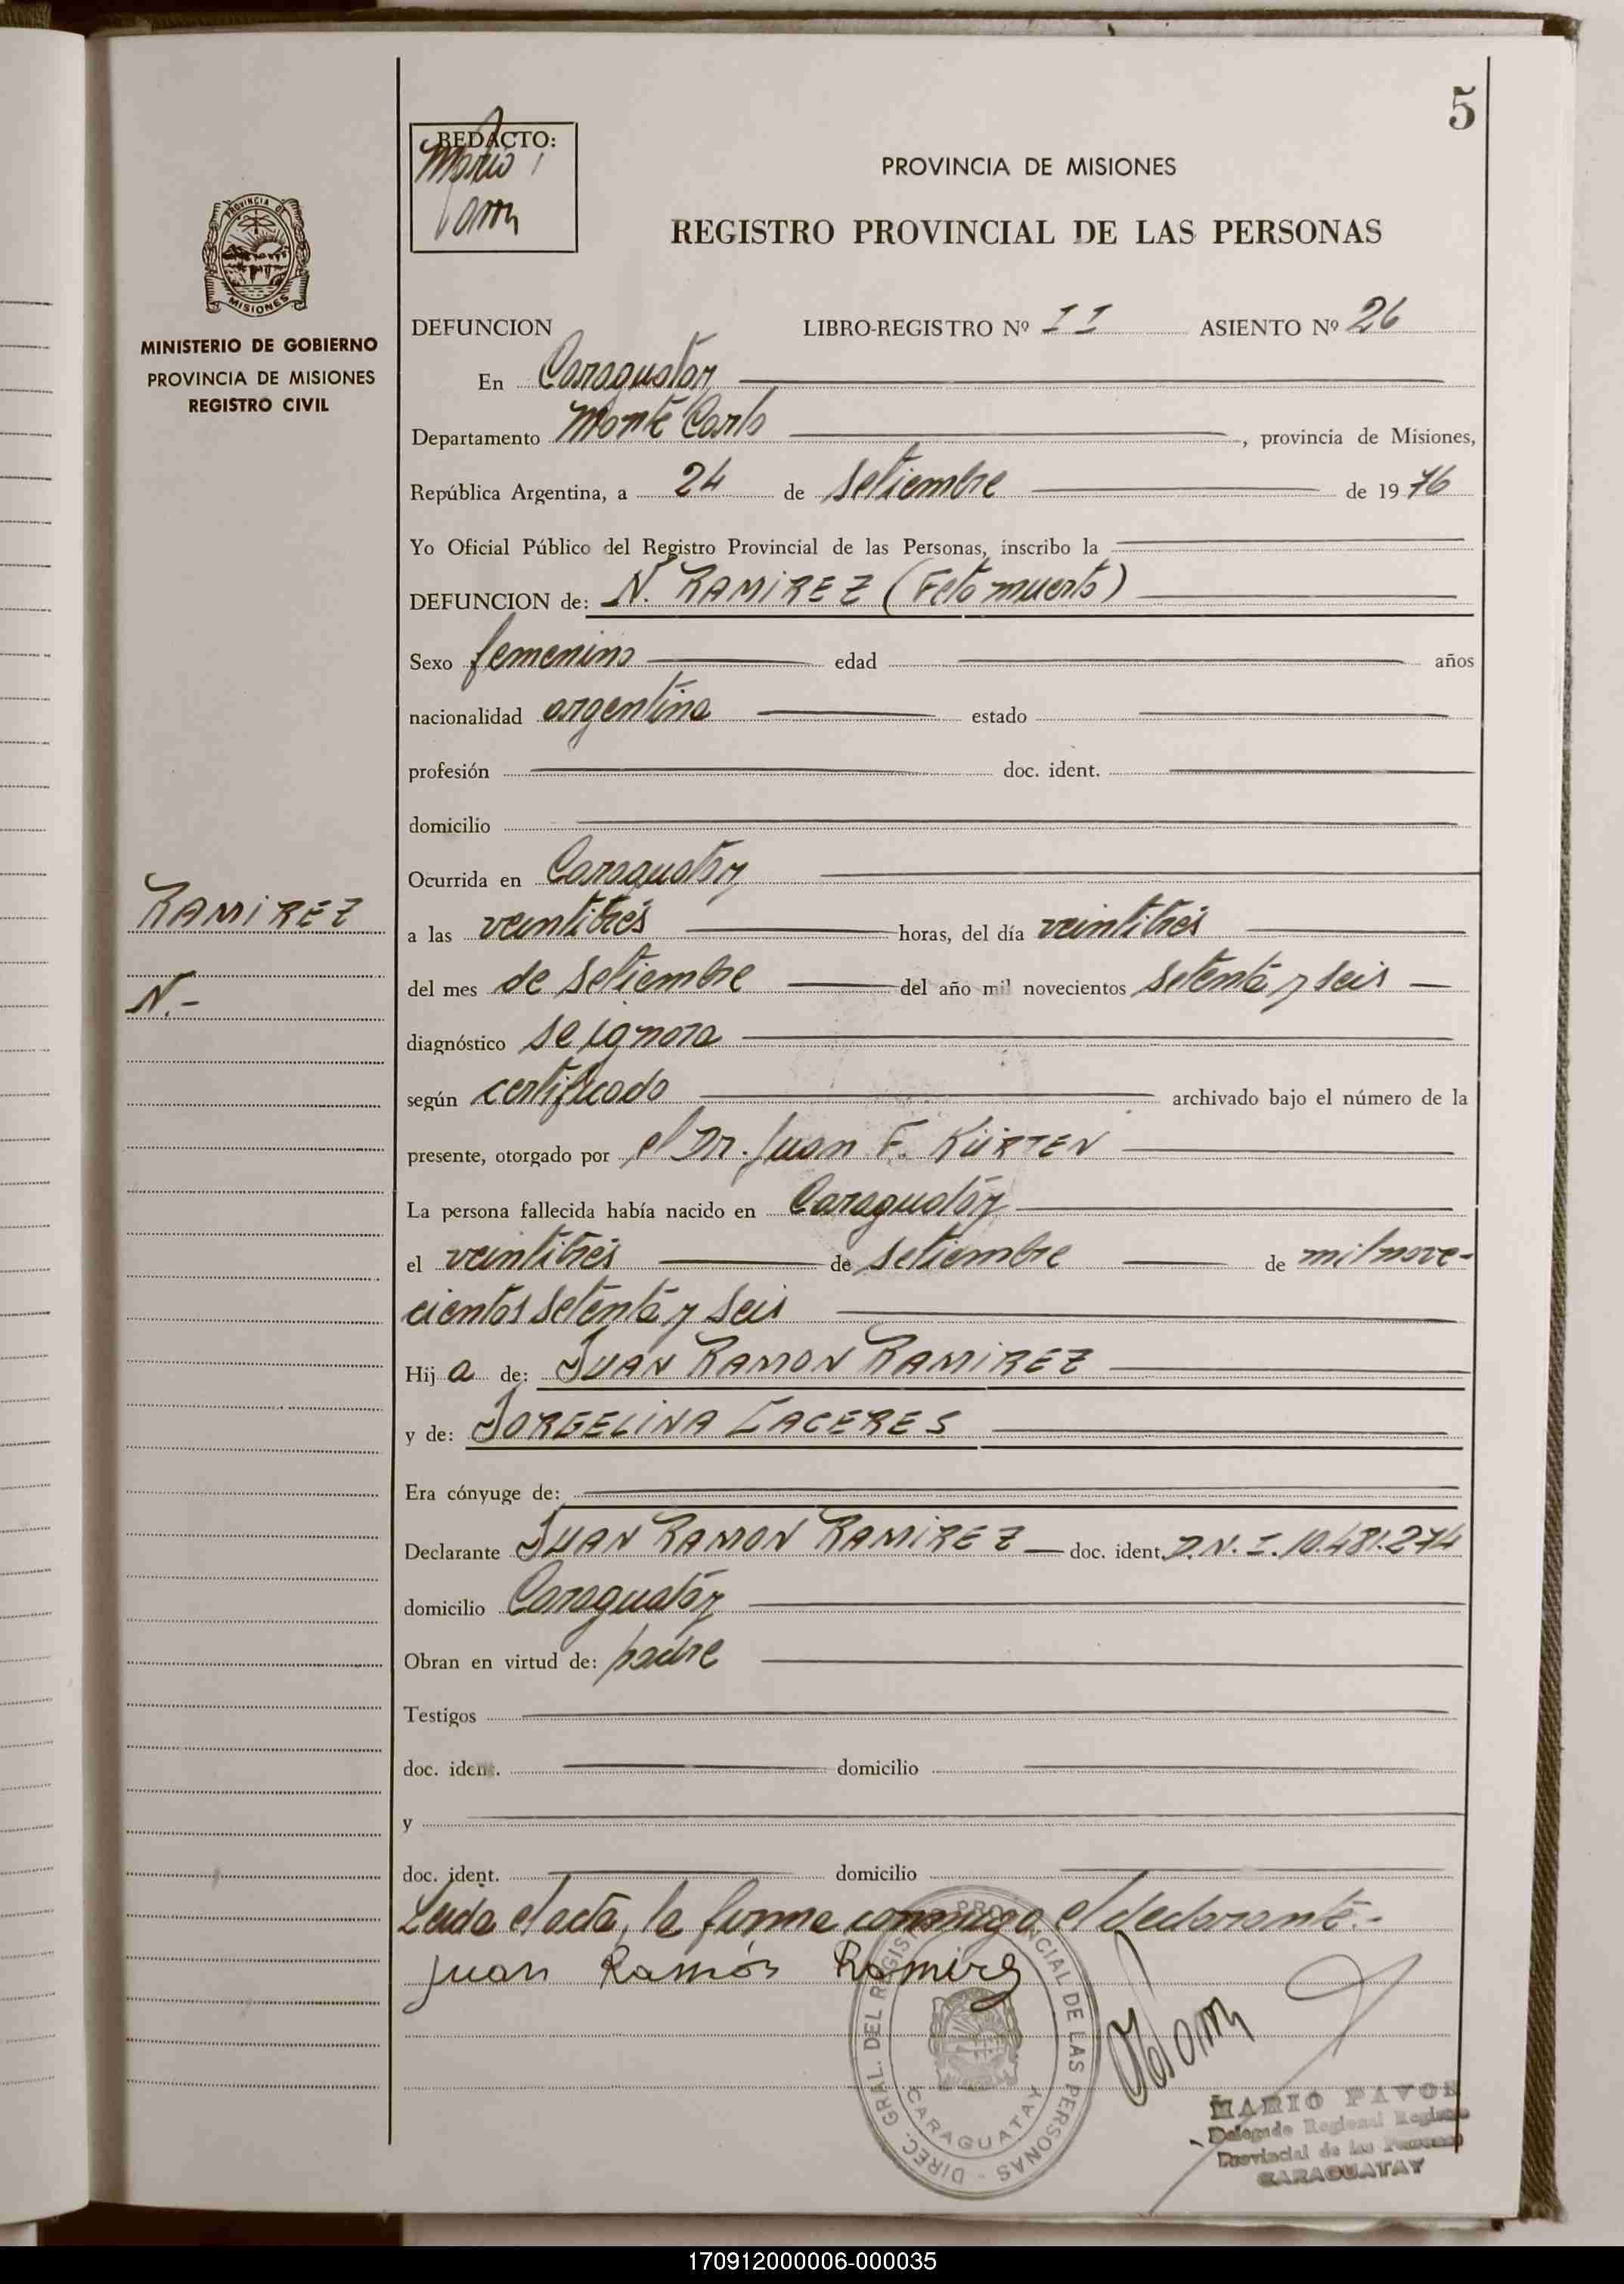 5
REDACTO:
Mario
PROVINCIA DE MISIONES
REGISTRO PROVINCIAL DE LAS PERSONAS
PROVINCIA DE
MISIONES
MINISTERIO DE GOBIERNO
PROVINCIA DE MISIONES
REGISTRO CIVIL
DEFUNCION LIBRO-REGISTRO Nº II ASIENTO Nº 26
En Caraguatay
Departamento Monte Carlo, provincia de Misiones,
República Argentina, a 24 de setiembre de 1976
Yo Oficial Público del Registro Provincial de las Personas, inscribo la
DEFUNCION de: N. RAMIREZ (Feto muerto)
Sexo femenino edad años
nacionalidad argentina estado
profesión doc. ident.
domicilio
Ocurrida en Caraguatay
RAMIREZ
N.-
a las veintitrés horas, del día veintitrés
del mes de setiembre del año mil novecientos setenta y seis
diagnóstico se ignora
según certificado archivado bajo el número de la
presente, otorgado por el Dr. Juan F. KÜRTEN
La persona fallecida había nacido en Caraguatay
el veintitrés de setiembre de mil nove-
cientos setenta y seis
Hij a de: JUAN RAMON RAMIREZ
y de: JORGELINA CACERES
Era cónyuge de:
Declarante JUAN RAMON RAMIREZ doc. ident. D.N.I. 10.481.274
domicilio Caraguatay
Obran en virtud de: padre
Testigos
doc. ident. domicilio
y
doc. ident. domicilio
Leída el acta, la firma conmigo el declarante.-
Juan Ramón Ramirez
DIREC. GRAL. DEL REGIST. PROVINCIAL DE LAS PERSONAS -
CARAGUATAY
MARIO PAVON
Delegado Regional Registro
Provincial de las Personas
CARAGUATAY
170912000006-000035